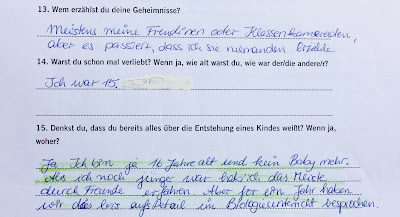 13. Wem erzählst du deine Geheimnisse?
Meistens meine Freudinen oder Klassenkameraden,
aber es passiert, dass ich sie niemanden erzähle
14. Warst du schon mal verliebt? Wenn ja, wie alt warst du, wie war der/die andere/r?
Ich war 15.
15. Denkst du, dass du bereits alles über die Entstehung eines Kindes weißt? Wenn ja,
woher?
Ja. Ich bin ja 16 Jahre alt und kein Baby mehr.
Als ich noch jünger war hab' ich das Meiste
durch Freunde erfahren. Aber for ein Jahr haben
wir das bis aufs Detail im Biologieunterricht besprochen.